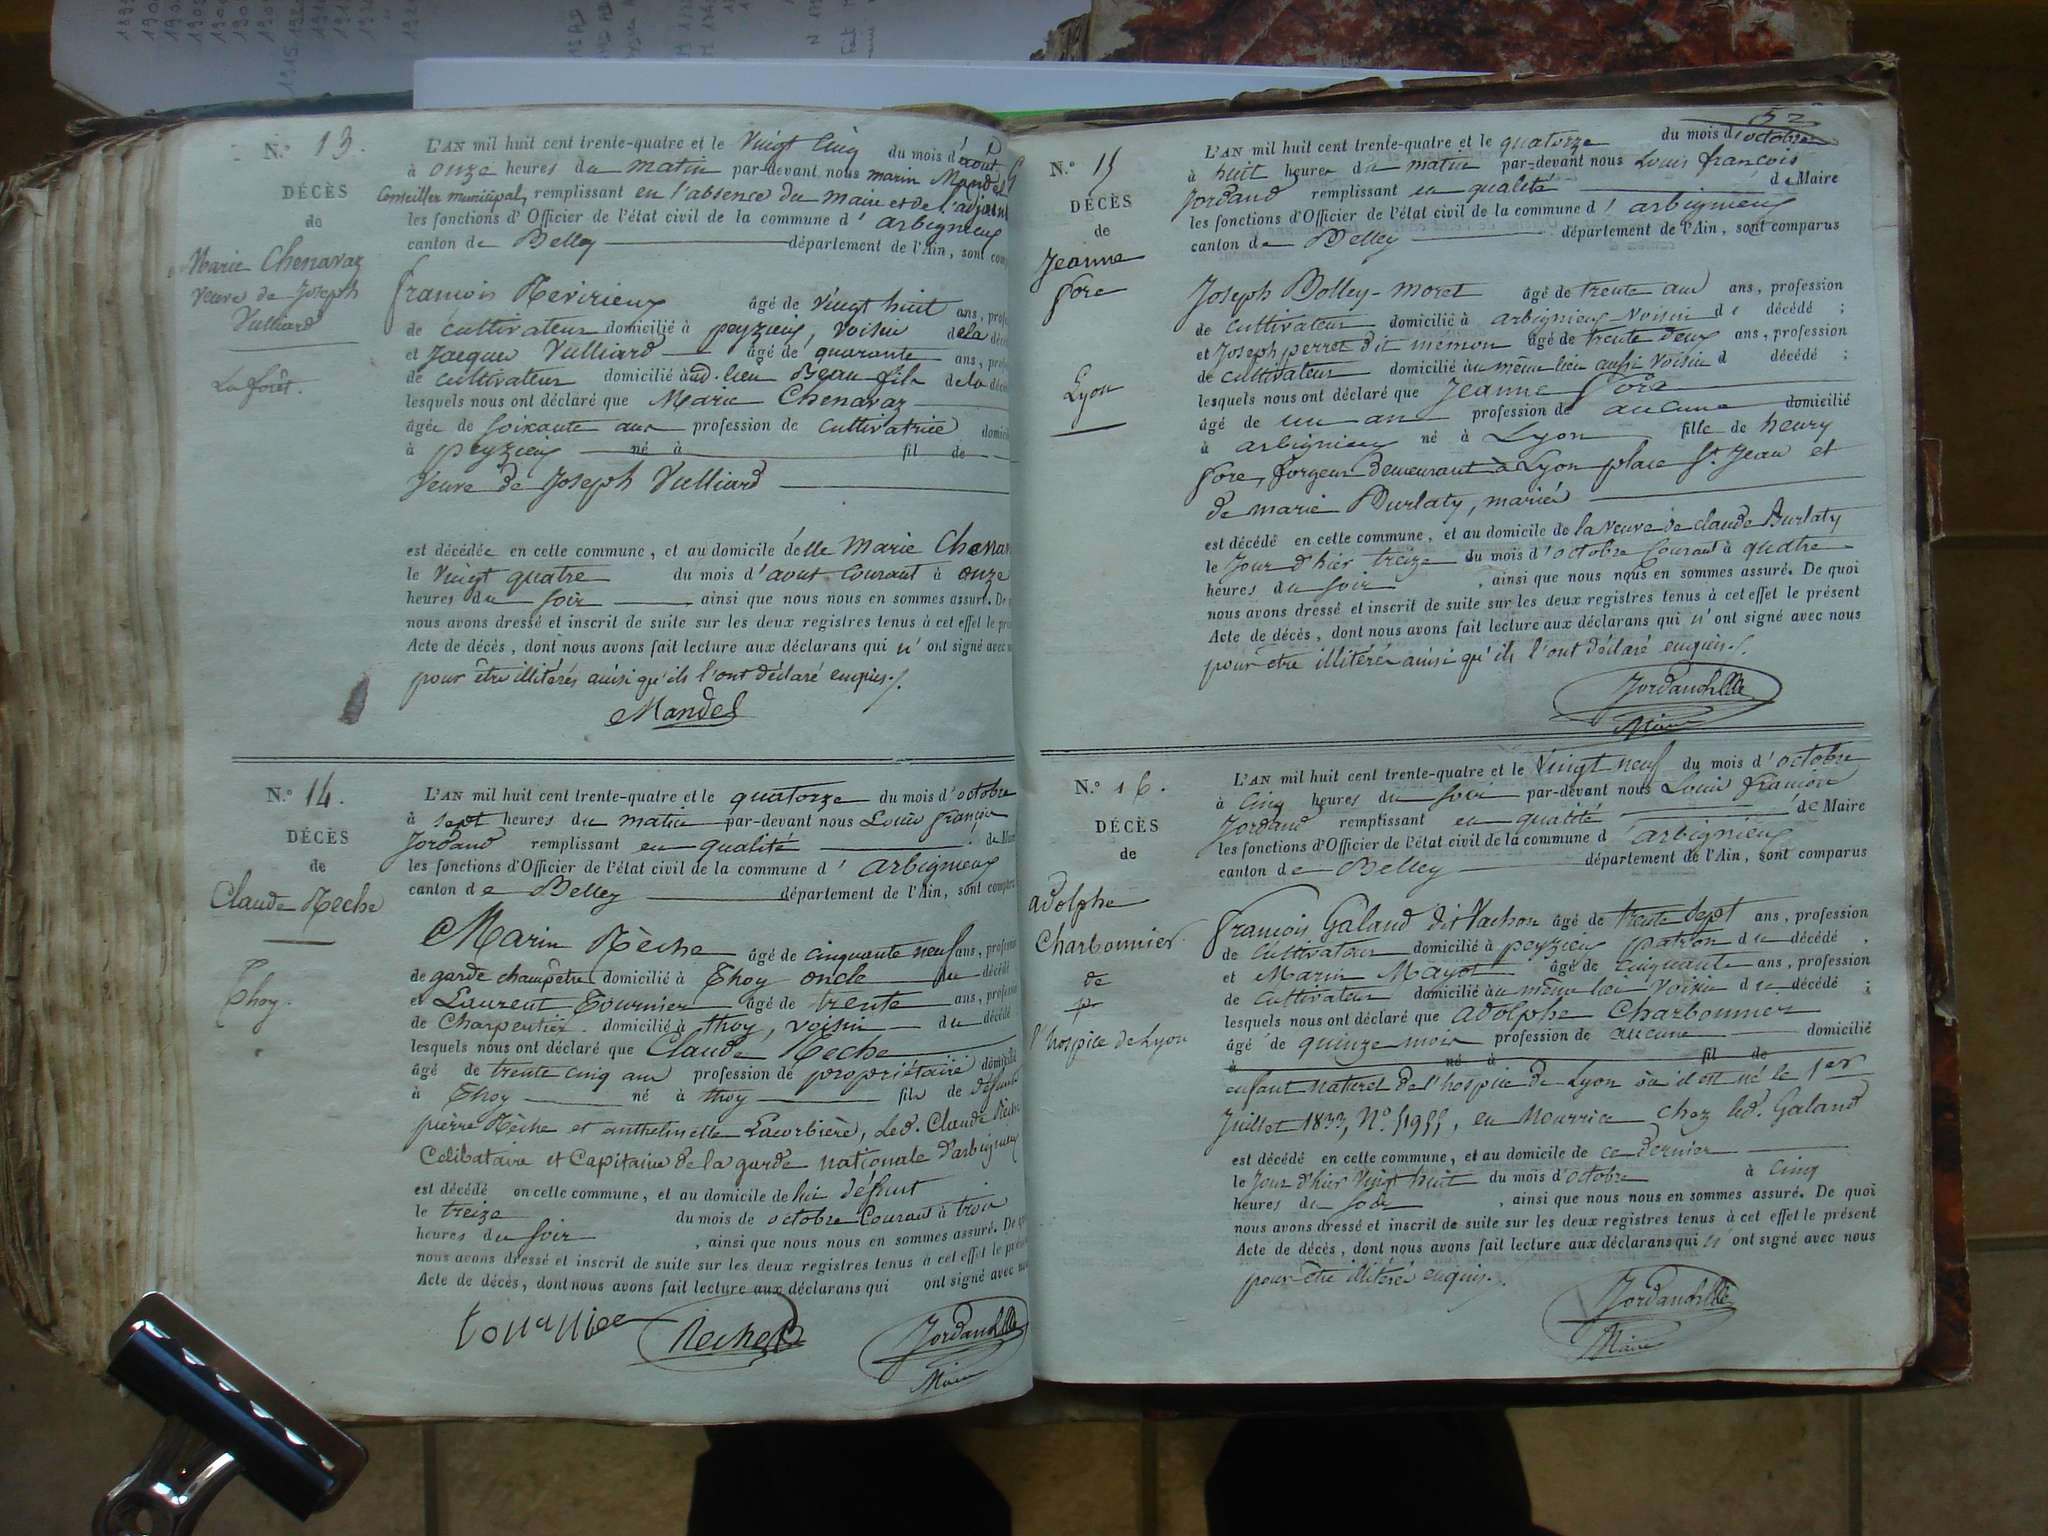 N.° 13.
DÉCÈS
de
Marie Chenavaz
veuve de Joseph
Vulliard
La forêt.
L'AN mil huit cent trente-quatre et le vingt cinq du mois d'août
à onze heures du matin par-devant nous marin Mandel
Conseiller municipal, remplissant en l'absence du maire et de l'adjoint
les fonctions d'Officier de l'état civil de la commune d' arbignieux
canton de Belley département de l'Ain, sont comp
françois Revirieux âgé de vingt huit ans, profe
de cultivateur domicilié à peyzieux, voisin de la décé
et Jacques Vulliard âgé de quarante ans, prof
de cultivateur domicilié aud. lieu Beau fils de la décé
lesquels nous ont déclaré que Marie Chenavaz
âgée de soixante ans profession de cultivatrice domici
à peyzieux né à fil de
Veuve de Joseph Vulliard
est décédée en cette commune, et au domicile delle Marie Chenav
le vingt quatre du mois d'aout courant à onze
heures du soir ainsi que nous nous en sommes assuré. De
nous avons dressé et inscrit de suite sur les deux registres tenus à cet effet le pré
Acte de décès, dont nous avons fait lecture aux déclarans qui n'ont signé avec n
pour être illitérés ainsi qu'ils l'ont déclaré enquis./.
Mandel
N.° 14.
DÉCÈS
de
Claude Reche
Thoy.
L'AN mil huit cent trente-quatre et le quatorze du mois d'octobre
à sept heures du matin par-devant nous Louis françois
Jordand remplissant en qualité de Mai
les fonctions d'Officier de l'état civil de la commune d' arbignieux
canton de Belley département de l'Ain, sont compar
Marin Rèche âgé de cinquante neuf ans, profession
de garde champêtre domicilié à Thoy oncle du décédé
et Laurent Tournier âgé de trente ans, profession
de Charpentier domicilié à thoy, voisin du décédé
lesquels nous ont déclaré que Claude Reche
âgé de trente cinq ans profession de propriétaire domicilié
à Thoy né à thoy fils de défunt
pierre Rèche et anthelmette Lacorbière, led. Claude Rèche
Célibataire et Capitaine de la garde nationale d'arbignieux
est décédé en cette commune, et au domicile de lui defunt
le treize du mois de octobre Courant à trois
heures du soir, ainsi que nous nous en sommes assuré. De q
nous avons dressé et inscrit de suite sur les deux registres tenus à cet effet le prés
Acte de décès, dont nous avons fait lecture aux déclarans qui ont signé avec n
tournier Reche Jordand
Maire
52
N.° 15
DÉCÈS
de
Jeanne
fore
Lyon
L'AN mil huit cent trente-quatre et le quatorze du mois d'octobre
à huit heures du matin par-devant nous Louis françois
Jordand remplissant en qualité de Maire
les fonctions d'Officier de l'état civil de la commune d' arbignieux
canton de Belley département de l'Ain, sont comparus
Joseph Bolley-moret âgé de trente ans ans, profession
de cultivateur domicilié à arbignieux voisin de décédé ;
et Joseph perret dit memon âgé de trente deux ans, profession
de cultivateur domicilié au même lieu aussi voisin d décédé ;
lesquels nous ont déclaré que Jeanne fore
âgé de un an profession de aucune domicilié
à arbignieux né à Lyon fille de henry
fore, forgeur demeurant à Lyon place St. Jean et
de marie Burlaty, mariés
est décédé en cette commune, et au domicile de la veuve de claude Burlaty
le jour d'hier treize du mois d'octobre Courant à quatre
heures du soir, ainsi que nous nous en sommes assuré. De quoi
nous avons dressé et inscrit de suite sur les deux registres tenus à cet effet le présent
Acte de décès, dont nous avons fait lecture aux déclarans qui n'ont signé avec nous
pour etre illitérés ainsi qu'ils l'ont déclaré enquis./.
Jordand
Maire
N.° 16.
DÉCÈS
de
adolphe
Charbonnier
de
l'hospice de Lyon
L'AN mil huit cent trente-quatre et le vingt neuf du mois d'octobre
à cinq heures du soir par-devant nous Louis françois
Jordand remplissant en qualité de Maire
les fonctions d'Officier de l'état civil de la commune d' arbignieux
canton de Belley département de l'Ain, sont comparus
françois Galand dit Vachon âgé de trente sept ans, profession
de cultivateur domicilié à peyzieux patron du décédé,
et Marin Mayot âgé de cinquante ans, profession
de cultivateur domicilié au même lieu voisin du décédé ;
lesquels nous ont déclaré que adolphe Charbonnier
âgé de quinze mois profession de aucune domicilié
à né à fil de
enfant naturel de l'hospice de Lyon où il est né le 1er
Juillet 1833, N.°, en Nourrice chez led. Galand
est décédé en cette commune, et au domicile de ce dernier
le jour d'hier vingt huit du mois d'octobre à cinq
heures du soir, ainsi que nous nous en sommes assuré. De quoi
nous avons dressé et inscrit de suite sur les deux registres tenus à cet effet le présent
Acte de décès, dont nous avons fait lecture aux déclarans qui n'ont signé avec nous
pour être illitérés enquis./.
Jordand
Maire